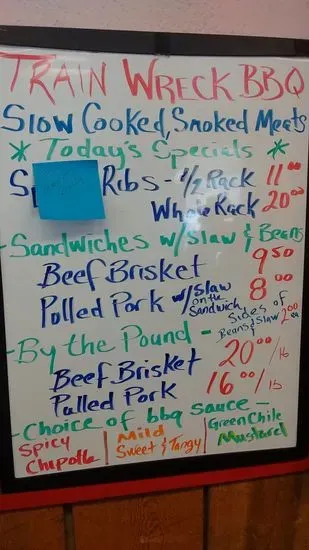 TRAIN WRECK BBQ
Slow Cooked, Smoked Meats
* Today's Specials *
Ribs - 1/2 Rack 11 00
Whole Rack 20 00
- Sandwiches w/ Slaw & Beans
Beef Brisket 9 50
Pulled Pork w/ Slaw on the Sandwich 8 00
Sides of Beans & Slaw 2 00 ea
- By the Pound -
Beef Brisket 20 00/lb
Pulled Pork 16 00/lb
- Choice of bbq sauce -
Spicy Chipotle | Mild Sweet & Tangy | Green Chile Mustard